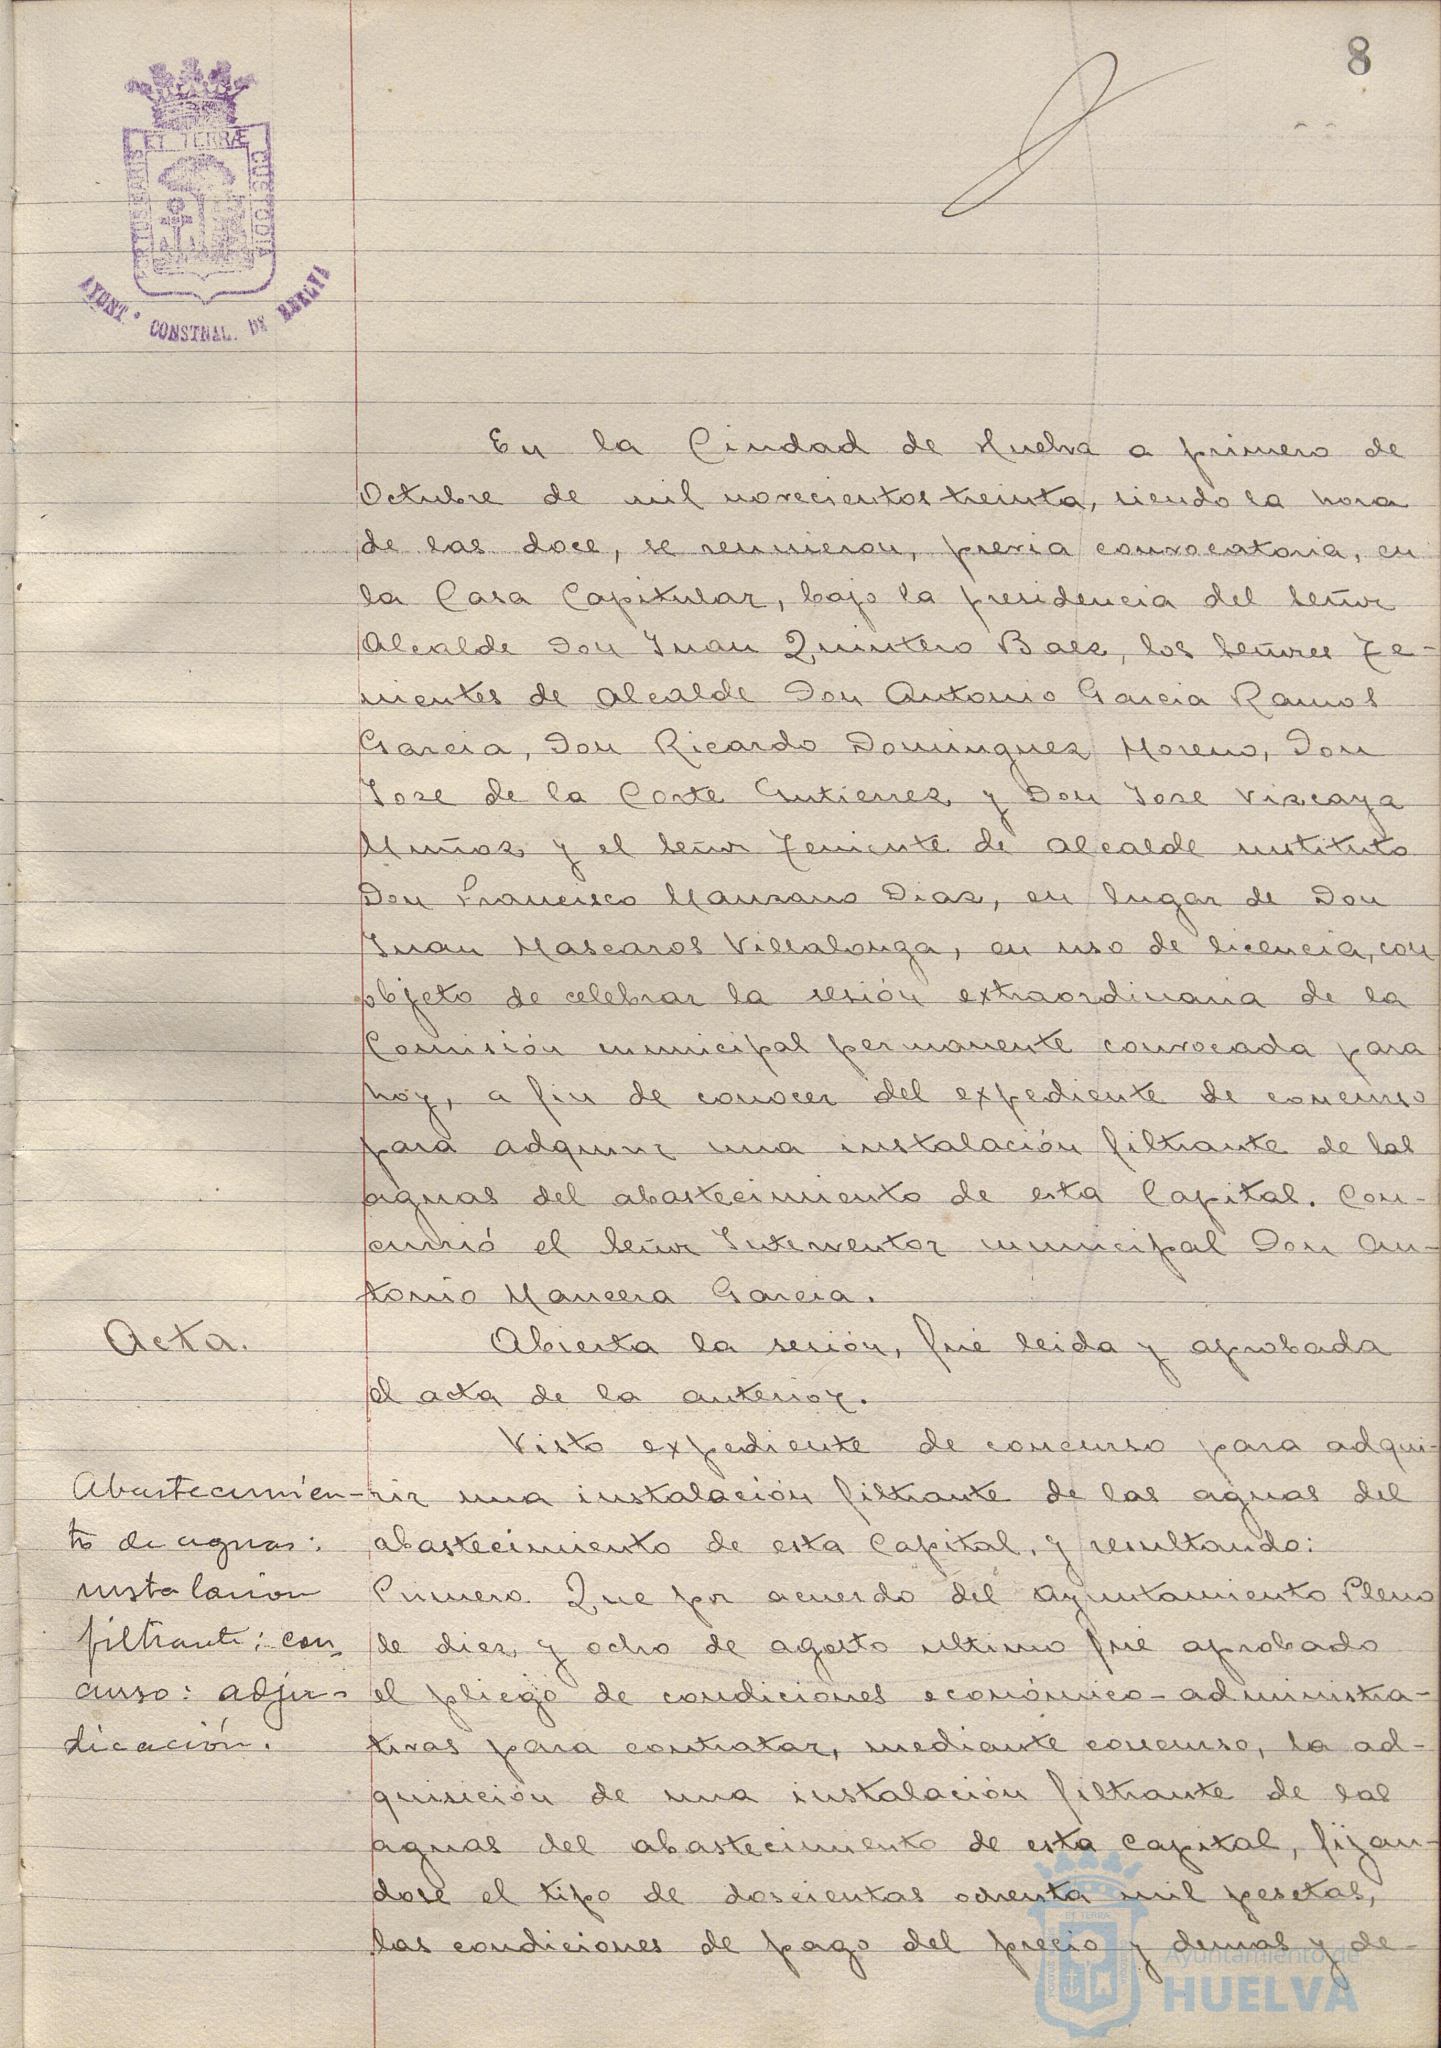 8
ET TERRÆ
PORTUS MARIS
CUSTODIA
AYUNT. CONSTNAL. DE HUELVA
En la Ciudad de Huelva a primero de
Octubre de mil novecientos treinta, siendo la hora
de las doce, se reunieron, previa convocatoria, en
la Casa Capitular, bajo la presidencia del Señor
Alcalde Don Juan Quintero Baez, los Señores Te-
nientes de Alcalde Don Antonio Garcia Ramos
Garcia, Don Ricardo Dominguez Moreno, Don
Jose de la Corte Gutierrez y Don Jose Vizcaya
Muñoz y el Señor Teniente de Alcalde sustituto
Don Francisco Manzano Diaz, en lugar de Don
Juan Mascaros Villalonga, en uso de licencia, con
objeto de celebrar la sesión extraordinaria de la
Comisión municipal permanente convocada para
hoy, a fin de conocer del expediente de concurso
para adquirir una instalación filtrante de las
aguas del abastecimiento de esta Capital. Con-
currió el Señor Interventor municipal Don An-
tonio Mancera Garcia.
Acta.
Abierta la sesión, fué leida y aprobada
el acta de la anterior.
Abastecimien-
to de aguas:
instalacion
filtrante: con-
curso: adju-
dicación.
Visto expediente de concurso para adqui-
rir una instalación filtrante de las aguas del
abastecimiento de esta Capital, y resultando:
Primero. Que por acuerdo del Ayuntamiento Pleno
de diez y ocho de agosto ultimo fué aprobado
el pliego de condiciones económico-administra-
tivas para contratar, mediante concurso, la ad-
quisición de una instalación filtrante de las
aguas del abastecimiento de esta Capital, fijan-
dose el tipo de doscientas ochenta mil pesetas,
las condiciones de pago del precio y demas y de-
Ayuntamiento de
HUELVA